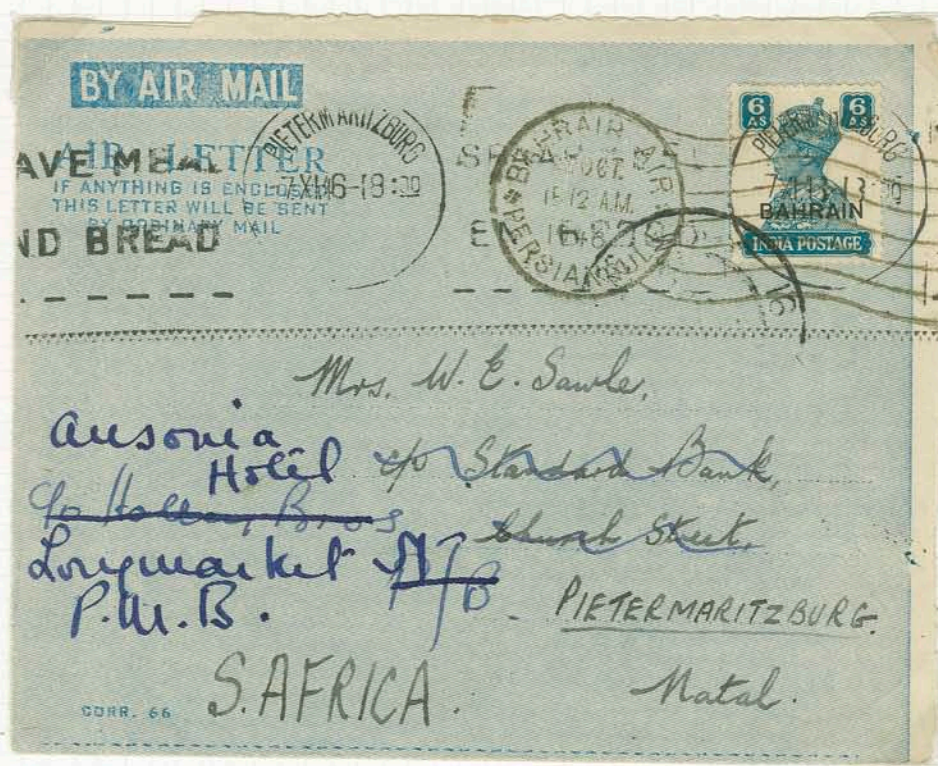 BY AIR MAIL
AIR LETTER
IF ANYTHING IS ENCLOSED
THIS LETTER WILL BE SENT
BY ORDINARY MAIL
AVE MEAL
ND BREAD
PIETERMARITZBURG
BAHRAIN AIR
OCT.
PERSIAN GULF
6 AS 6 AS
BAHRAIN
INDIA POSTAGE
Mrs. W. E. Sawle,
Ausonia
Hotel
c/o Standard Bank,
c/o Bros
Church Street,
Longmarket St
P.M.B.
PIETERMARITZBURG.
Natal.
S. AFRICA.
CORR. 66